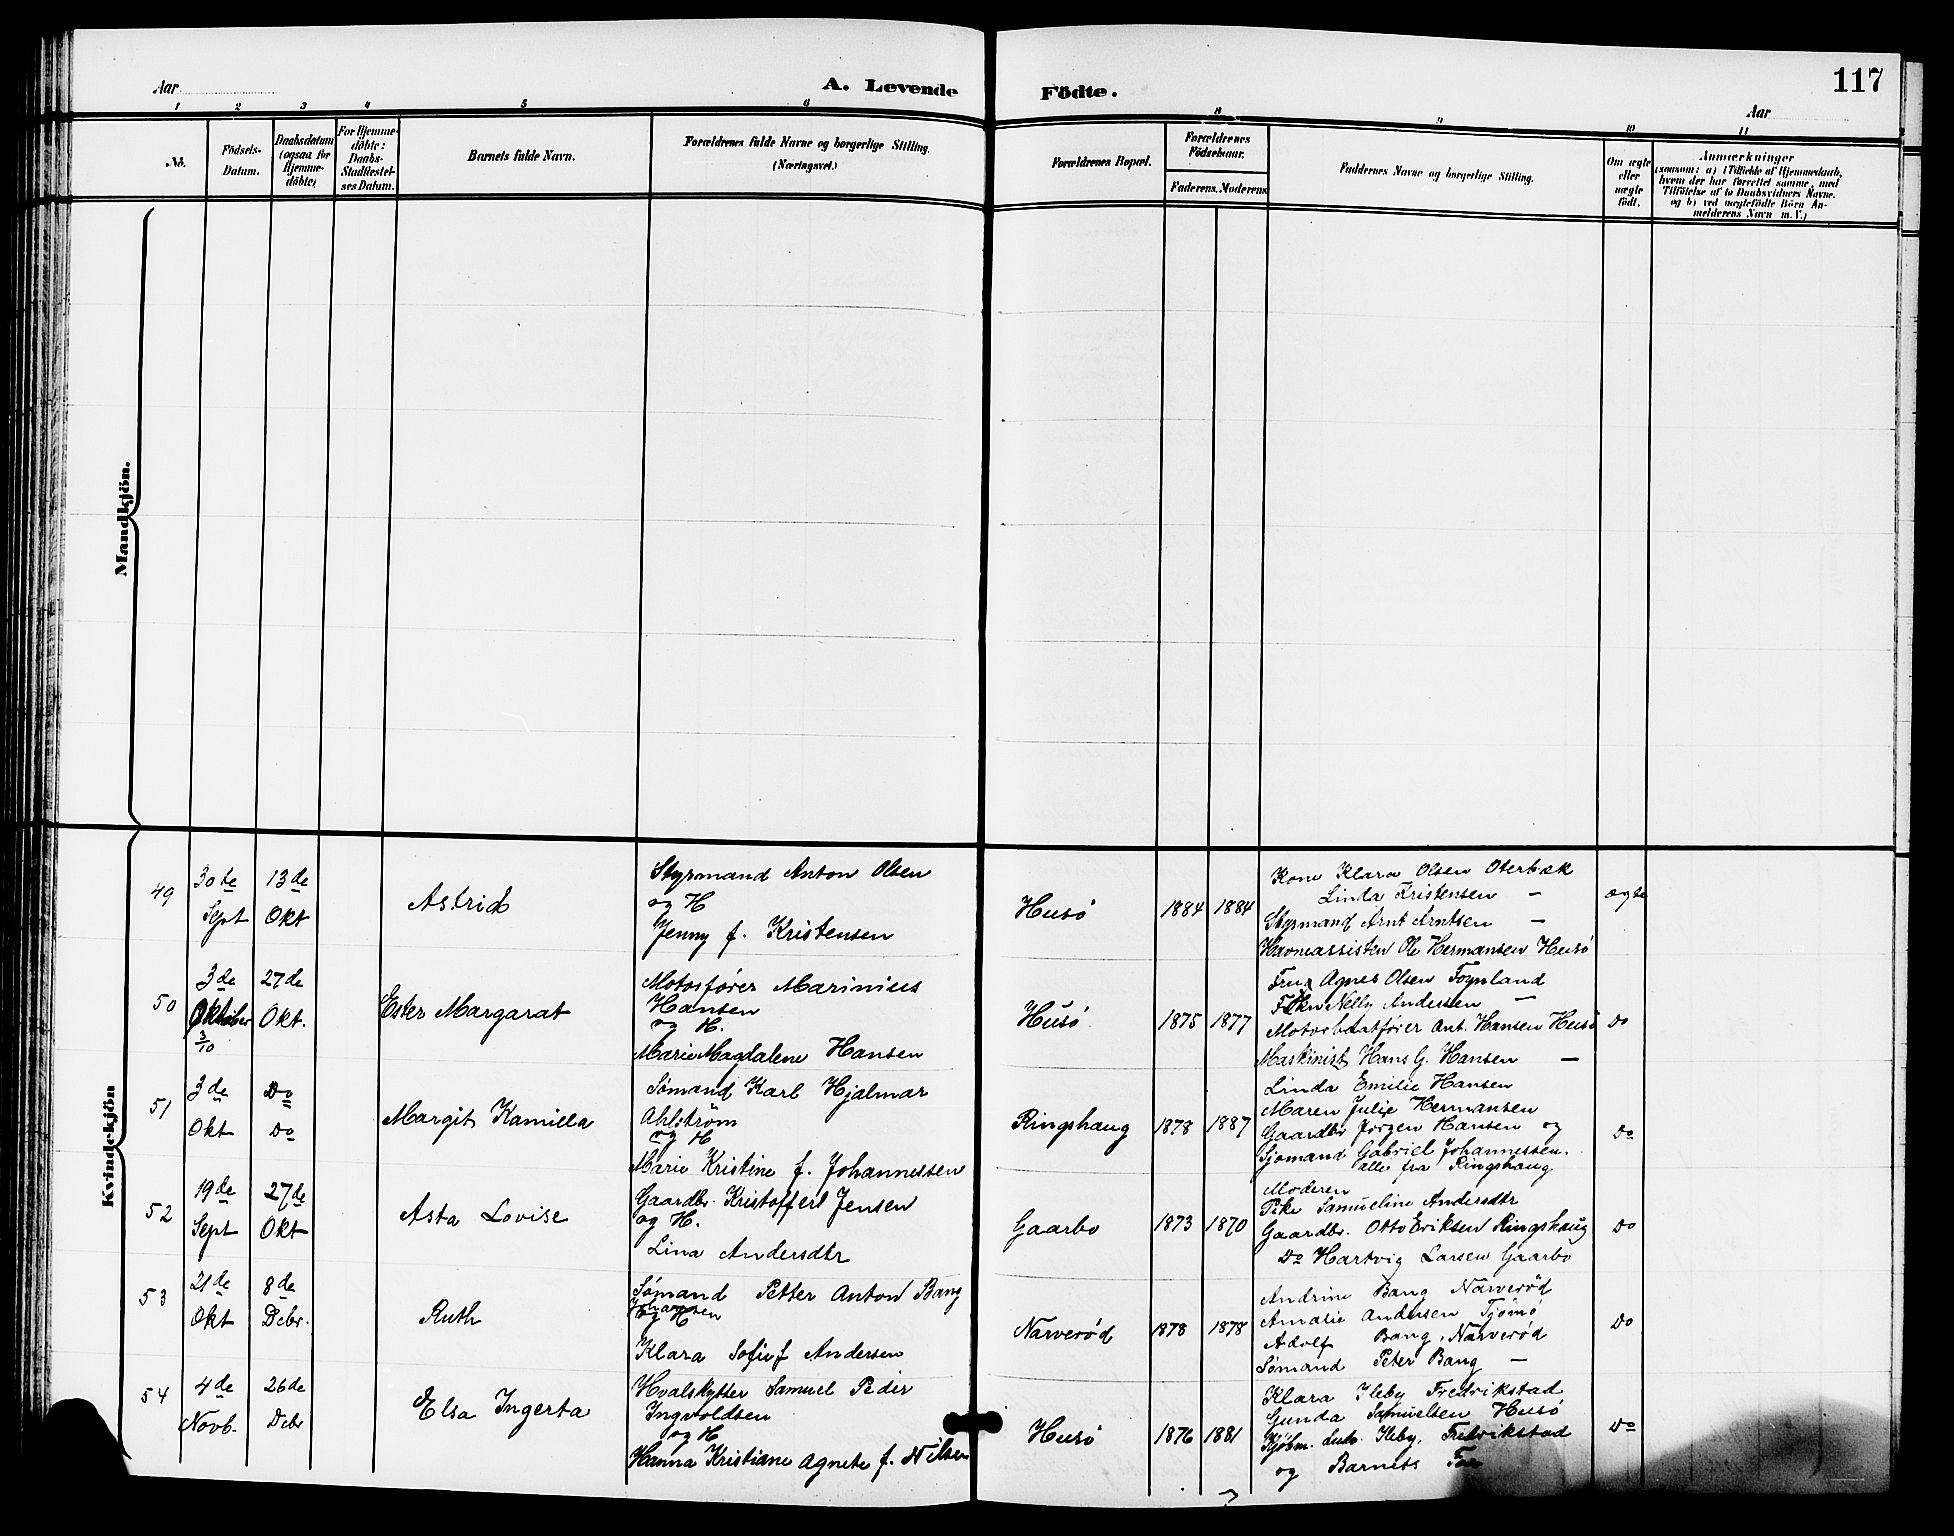 Aar
A. Levende
Födte.
117
Aar
1 2 3 4 5 6 8 9 10 11
No.
Födsels-
Datum.
Daabsdatum
(ogsaa for
Hjemme-
döbte)
For Hjemme-
döbte:
Daabs-
Stadfæstel-
ses Datum.
Barnets fulde Navn.
Forældrenes fulde Navne og borgerlige Stilling.
(Næringsvei.)
Forældrenes Bopæl.
Forældrenes
Födselsaar.
Faderens. Moderens.
Faddernes Navne og borgerlige Stilling.
Om ægte
eller
uægte
födt.
Anmærkninger
(saasom: a) i Tilfælde af Hjemmedaab,
hvem der har forrettet samme, med
Tilföielse af to Daabsvidners Navne.
og b) ved uægtefödte Börn An-
melderens Navn m. V.)
Mandkjön.
Kvindekjön
49
30te
Sept
13de
Okt
Astrid
Styrmand Anton Olsen
og H
Jenny f. Kristensen
Husö
1884 1884
Kone Klara Olsen Oterbæk
Linda Kristensen —
Styrmand Arnt Arntsen —
Havneassisten Ol. Hermansen Husö
ægte
50
3de
Oktober
3/10
27de
Okt.
Ester Margarat
Motorfører Marinius
Hansen
og H.
Marie Magdalene Hansen
Husö
1875 1877
Fru Agnes Olsen Foynland
Frkn Nelly Andersen —
Motorbaatfører Ant. Hansen Husö
Maskinist Hans G. Hansen —
Do
51
3de
Okt
Do
Do
Margit Kamilla
Sømand Karl Hjalmar
Ahlström
og H
Marie Kristine f. Johannessen
Ringshaug
1878 1887
Linda Emilie Hansen
Maren Julie Hermansen
Gaardbr Jørgen Hansen og
Sjømand Gabriel Johannessen.
alle fra Ringshaug
Do
52
19de
Sept
27de
Okt
Asta Lovise
Gaardbr. Kristoffer Jensen
og H.
Lina Andersdtr
Gaarbo
1873 1870
Moderen
Pike Samueline Andersdtr
Gaardbr. Otto Eriksen Ringshaug
Do Hartvig Larsen Gaarbo
Do
53
21de
Okt
8de
Debr.
Ruth
Sømand Petter Anton Bang
Johansen
og H
Klara Sofie f Andersen
Narverød
1878 1878
Andrine Bang Narverød
Amalie Andersen Tjömö
Adolf Bang, Narverød
Sømand Peter Bang —
Do
54
4de
Novb.
26de
Debr
Elsa Ingerta
Hvalskytter Samuel Peder
Ingvoldsen
og H
Hanna Kristiane Agnete f. Nilsen
Husö
1876 1881
Klara Ileby Fredrikstad
Gunda Samuelsen Husö
Kjøbm. Ludv. Ileby, Fredrikstad
og Barnets Far
Do